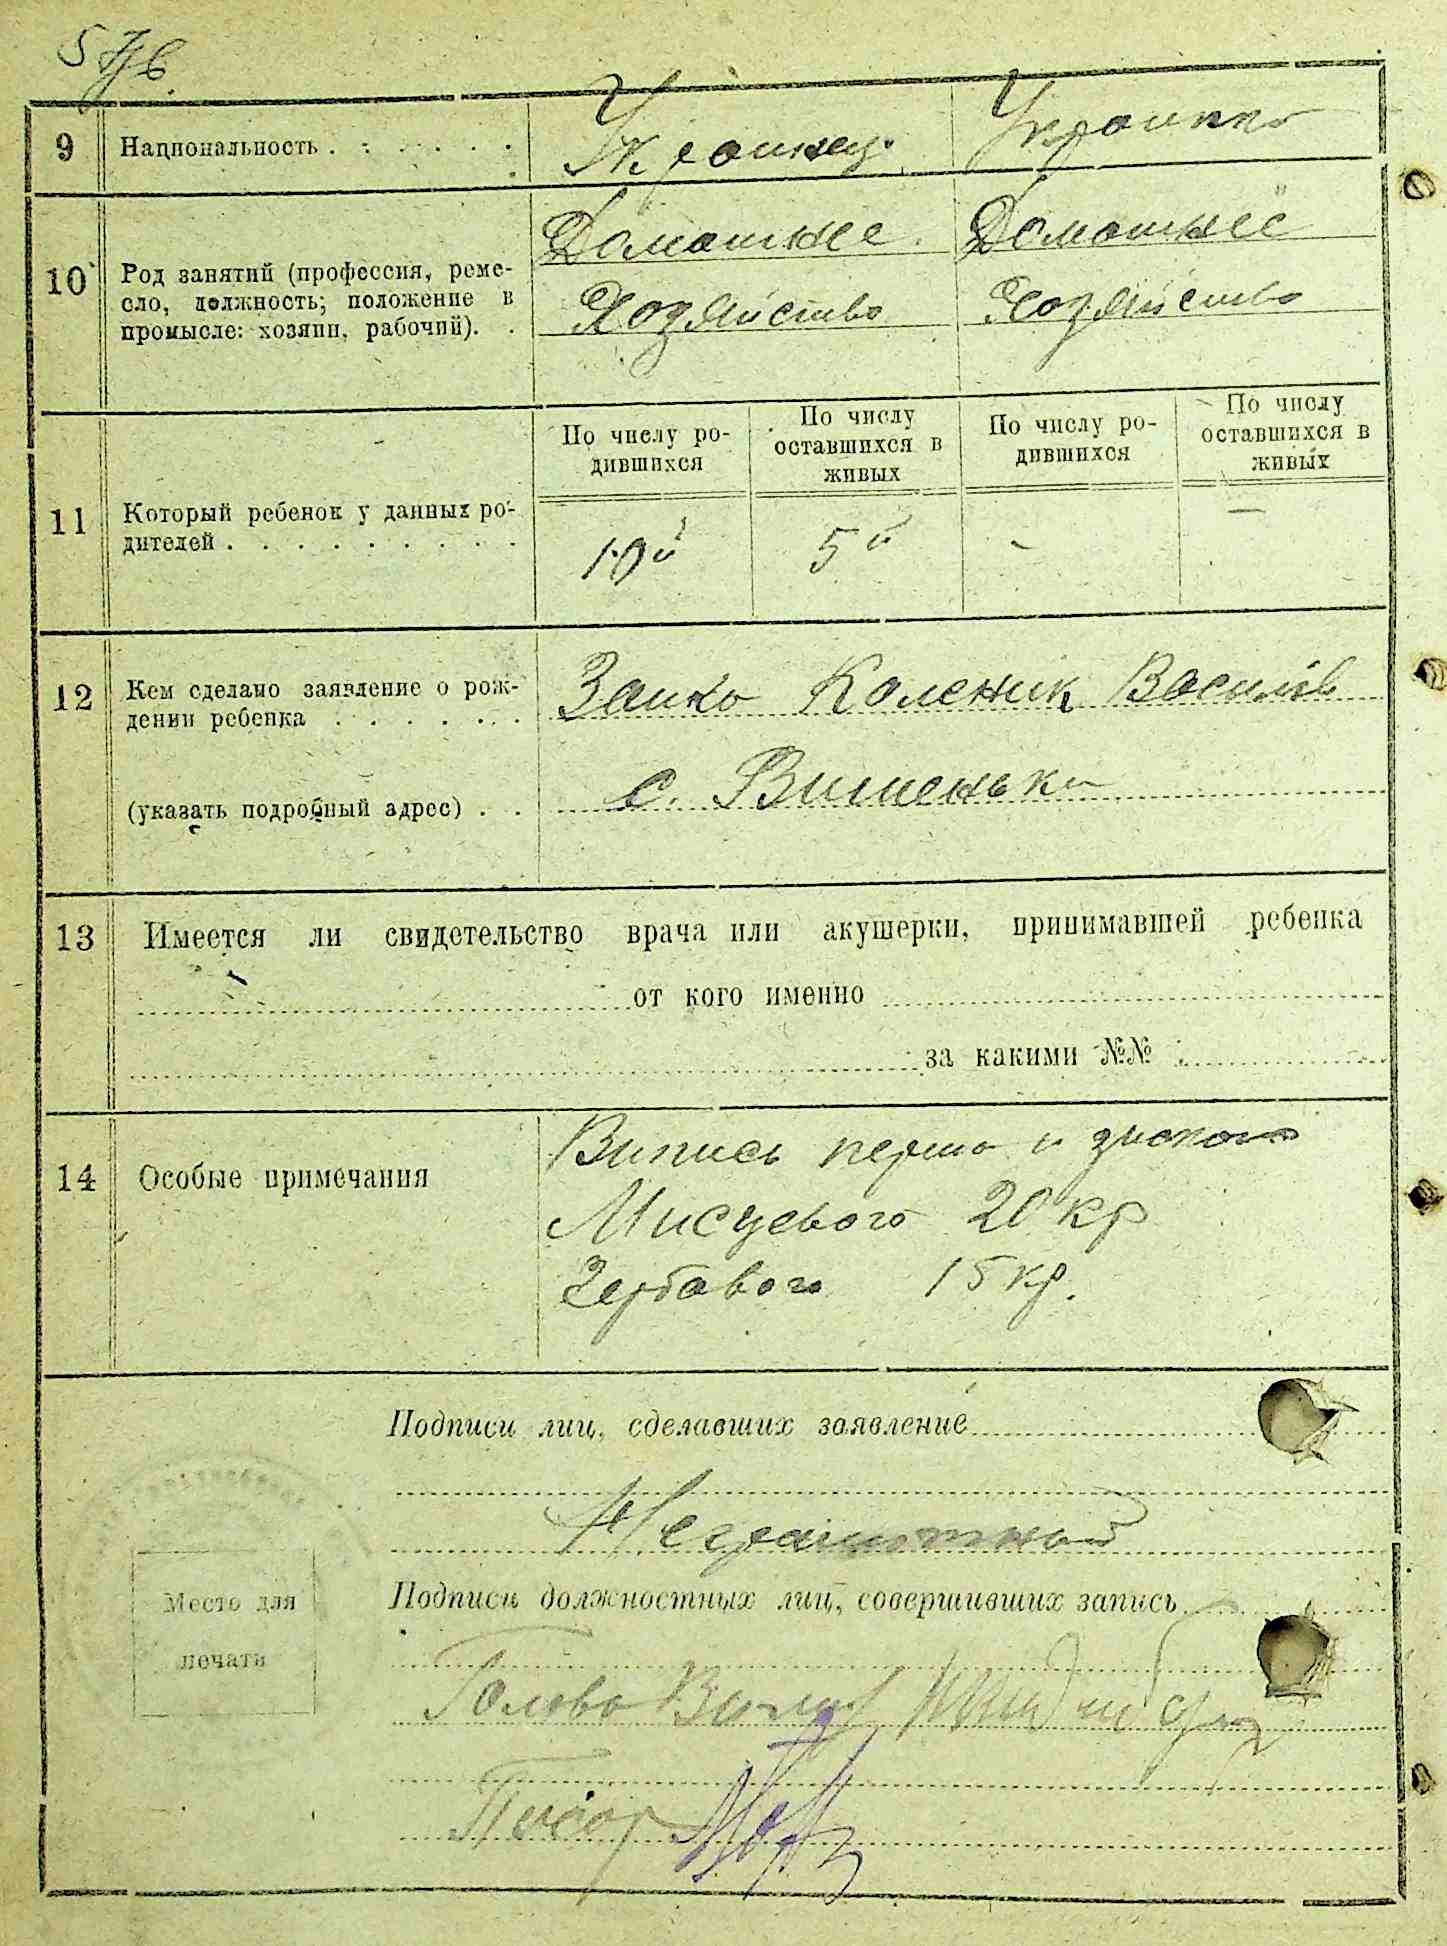 9 Национальность . . . . . . . Украинец. Украинка
10 Род занятий (профессия, реме-
сло, должность; положение в
промысле: хозяин, рабочий). .
Домашнее Домашнее
Хозяйство Хозяйство
11 Который ребенок у данных ро-
дителей . . . . . . . . . .
По числу ро-
дившихся
По числу
оставшихся в
живых
По числу ро-
дившихся
По числу
оставшихся в
живых
10й 5й - —
12 Кем сделано заявление о рож-
дении ребенка . . . . . . . Заико Каленик Васильв
(указать подробный адрес) . . с. Вишеньки
13 Имеется ли свидетельство врача или акушерки, принимавшей ребенка
от кого именно
за какими №№
14 Особые примечания
Випись перша и
Мисцевого 20 кр
Гербового 15 кр.
Подписи лиц, сделавших заявление
Неграмотный
Подписи должностных лиц, совершивших запись
Место для
печати
Голова
Писар